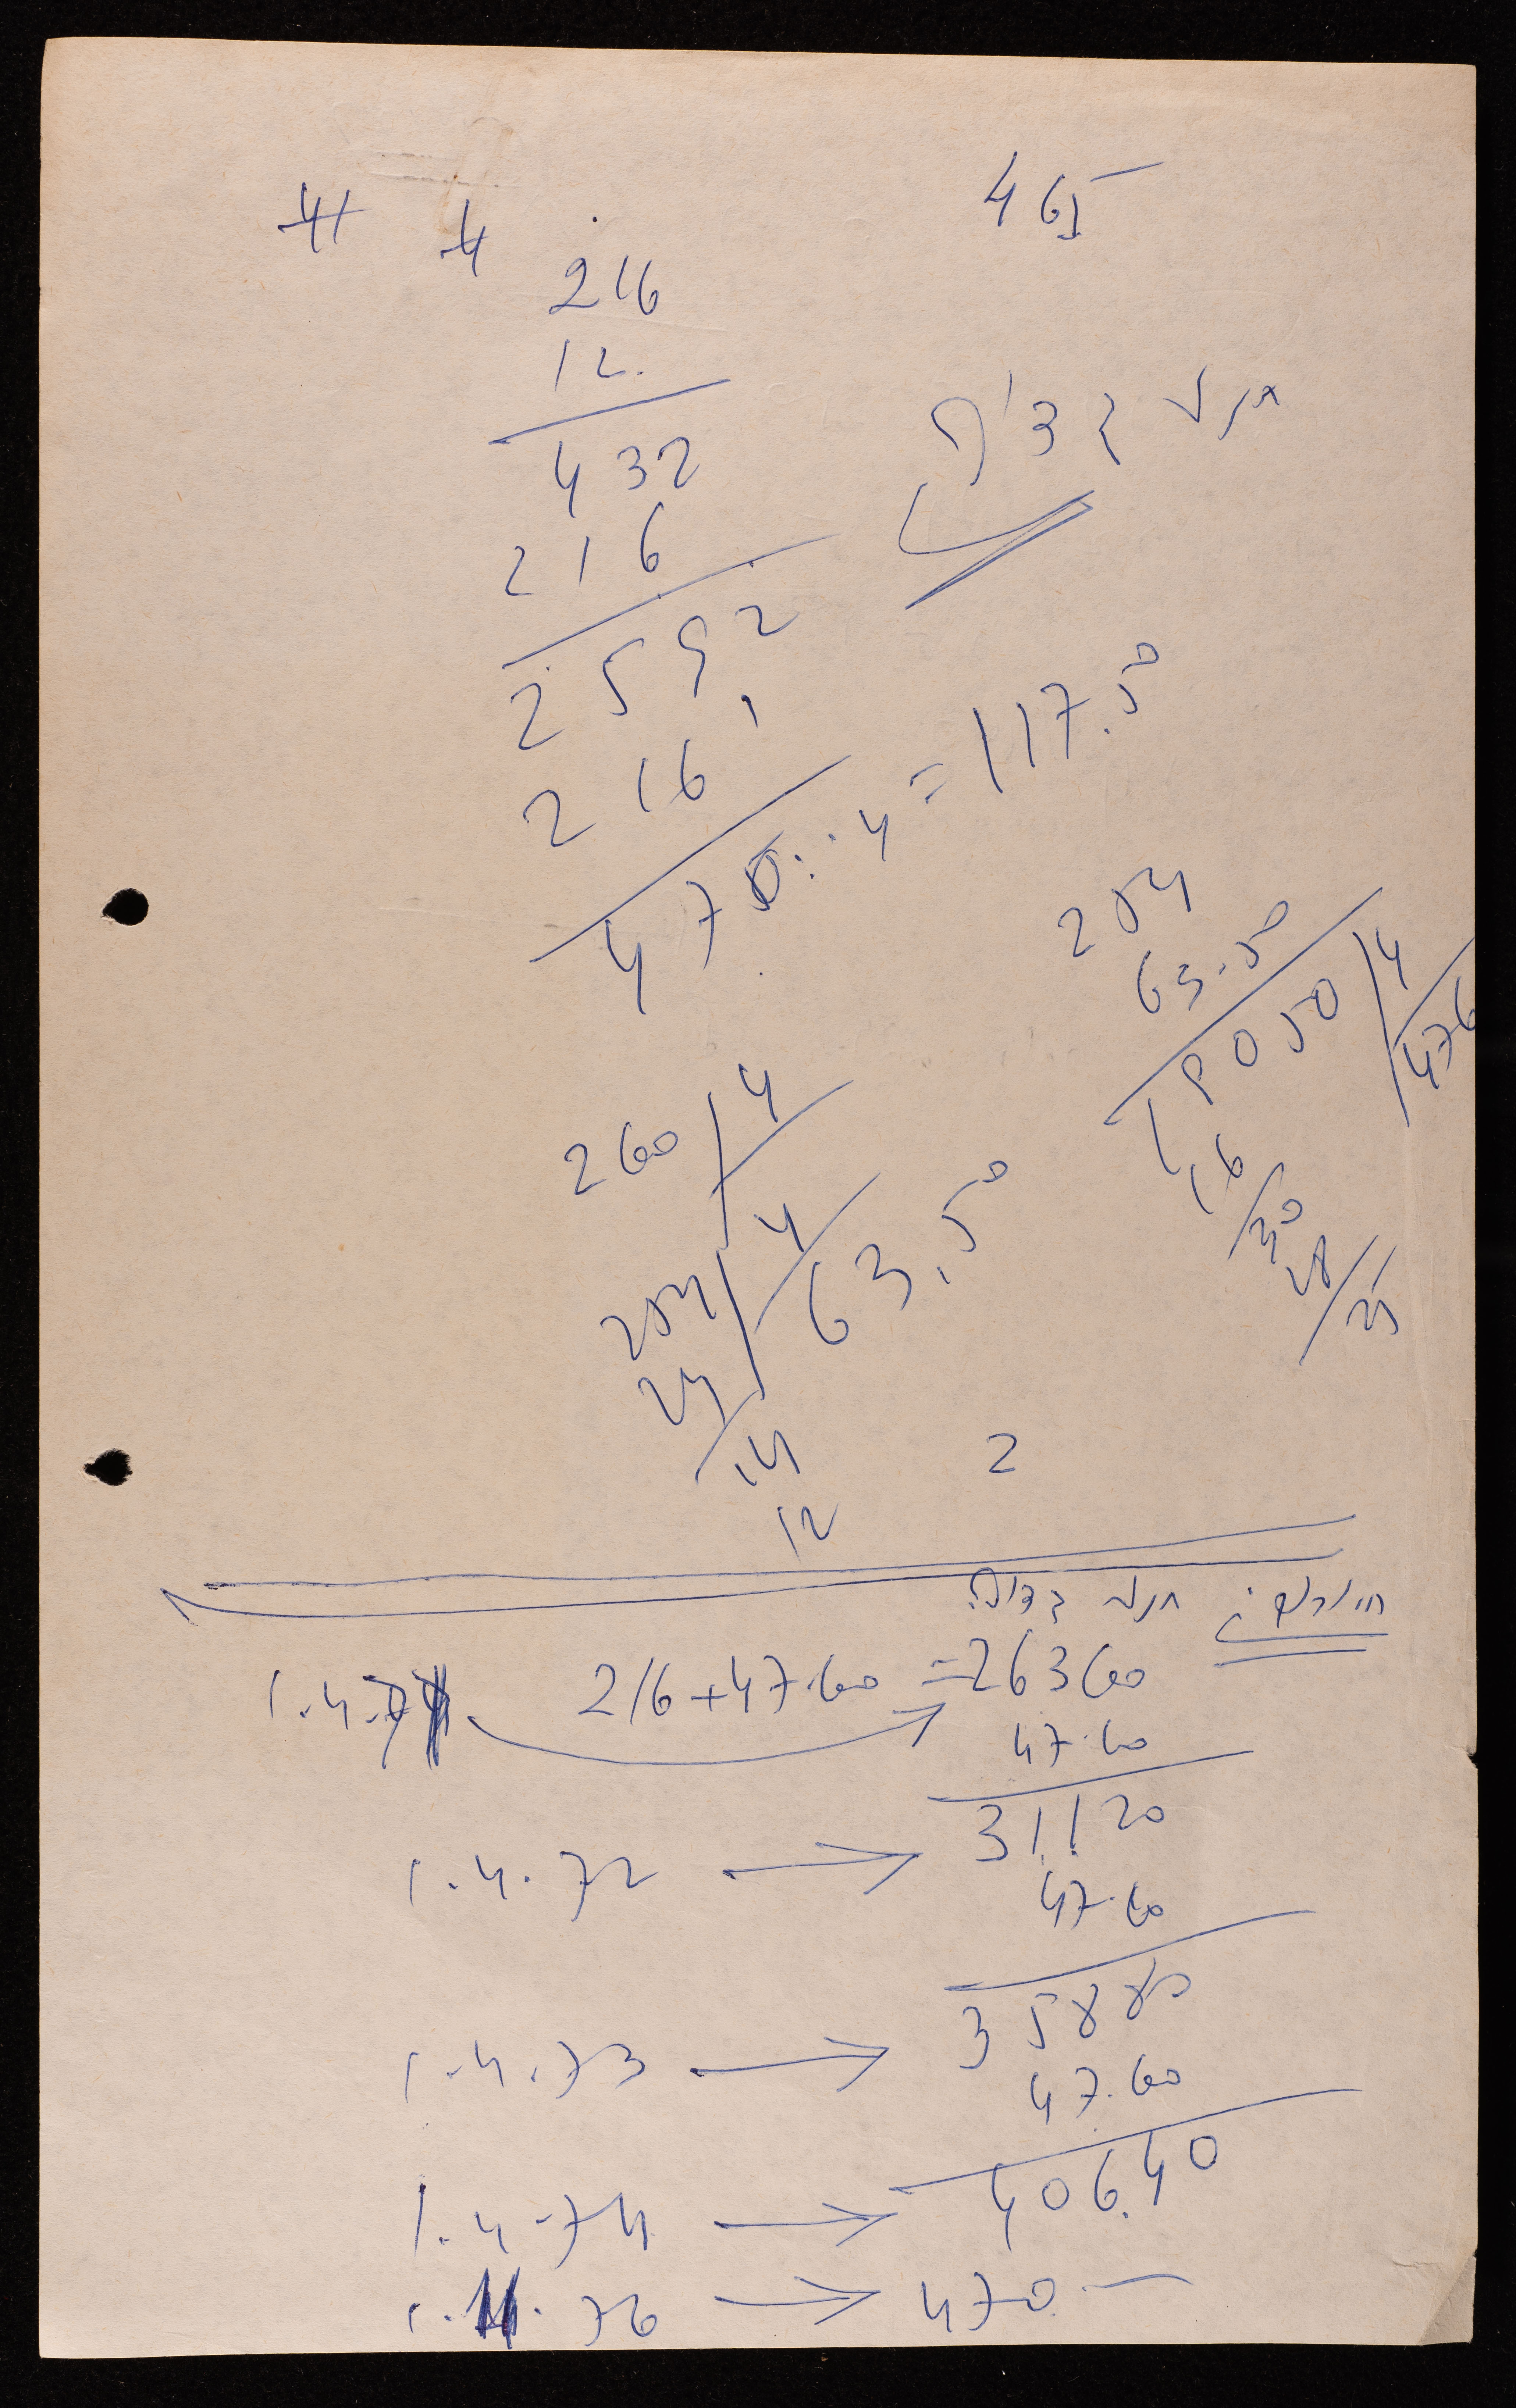 465
216
12
432
216
2552
216
470 : 4 = 117.50
254
63.50
190 50 / 4
476
16
30
28
25
260 / 4
254 / 4
63,50
24
14
12
2
1.4.71 216+47.60 = 263 60
47.60
1.4.72 → 311 20
47.60
1.4.73 → 358 80
47.60
1.4.74 → 406.40
1.4.76 → 470.—